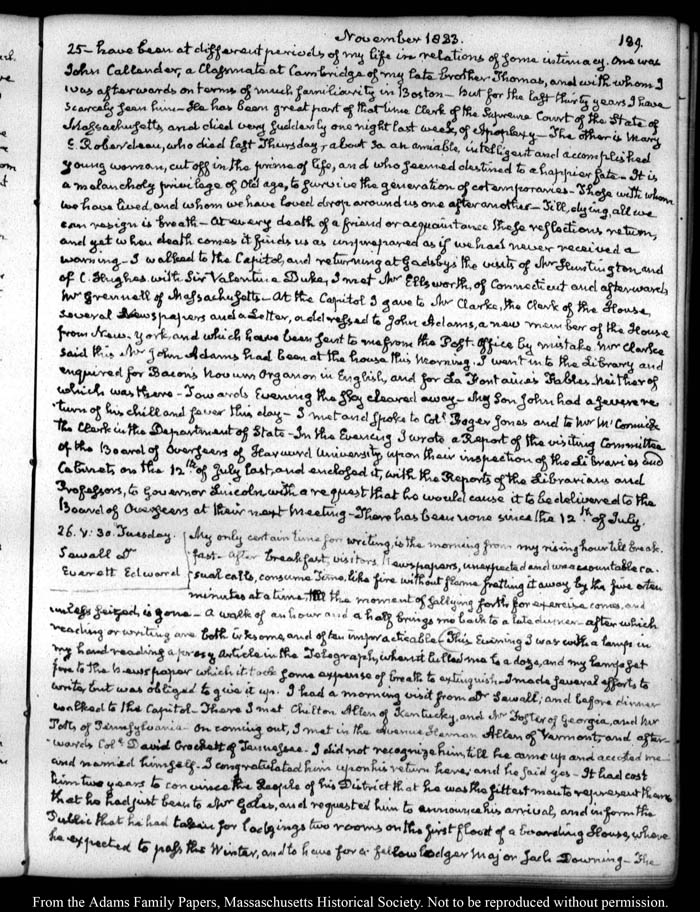 November 1833.
189.
25 - have been at different periods of my life in relations of some intimacy. One was
John Callender, a Classmate at Cambridge of my late brother Thomas, and with whom I
was afterwards on terms of much familiarity in Boston - but for the last thirty years I have
scarcely seen him - He has been great part of that time Clerk of the Supreme Court of the State of
Massachusetts, and died very suddenly one night last week, of Apoplexy - The other is Mary
E. Roberdeau, who died last Thursday, about 30 an amiable, intelligent and accomplished
young woman, cut off in the prime of life, and who seemed destined to a happier fate - It is
a melancholy privilege of Old age, to survive the generation of cotemporaries - Those with whom
we have lived, and whom we have loved drop around us one after another - Till, dying, all we
can resign is breath - At every death of a friend or acquaintance these reflections return,
and yet when death comes it finds us as unprepared as if we had never received a
warning - I walked to the Capitol, and returning at Gadsby's the visits of Mr Huntington, and
of C. Hughes with Sir Valentine Duke, I met Mr Ellsworth, of Connecticut and afterwards
Mr Grennell of Massachusetts - At the Capitol I gave to Mr Clarke, the Clerk of the House,
several Newspapers and a Letter, addressed to John Adams, a new member of the House
from New-York, and which have been sent to me from the Post-Office by mistake. Mr Clarke
said this Mr John Adams had been at the house this Morning. I went into the Library and
enquired for Bacon's Novum Organon in English, and for La Fontaine's Fables. Neither of
which was there - Towards Evening the sky cleared away - My Son John had a severe re
turn of his chill and fever this day - I met and spoke to Col. Roger Jones and to Mr McCormick
the Clerk in the Department of State - In the Evening I wrote a Report of the visiting Committee
of the Board of Overseers of Harvard University upon their inspection of the Libraries and
Cabinets, on the 12th of July last, and enclosed it, with the Reports of the Librarians and
Professors, to Governor Lincoln with a request that he would cause it to be delivered to the
Board of Overseers at their next Meeting - There has been none since the 12th of July.
26. V:30. Tuesday.
Sewall Dr
Everett Edward
My only certain time for writing, is the morning from my rising hour till Break-
fast - After breakfast, visitors, Newspapers, unexpected and unaccountable ca-
sual calls, consume Time, like fire without flame fretting it away by the five or ten
minutes at a time, till the moment of sallying forth for exercise comes, and
unless seized, is gone - A walk of an hour and a half brings me back to a late dinner - after which
reading or writing are both irksome, and often impracticable - This Evening I was with a lamp in
my hand reading a prosy Article in the Telegraph, when it lulled me to a doze, and my lamp set
fire to the Newspaper which it took some expense of breath to extinguish - I made several efforts to
write, but was obliged to give it up. I had a morning visit from Dr Sewall; and before dinner
walked to the Capitol - There I met Chilton Allen of Kentucky, and Mr Foster of Georgia, and Mr
Potts, of Pennsylvania - On coming out, I met in the avenue Heman Allen of Vermont, and after-
wards Col. David Crockett of Tennessee. I did not recognize him till he came up and accosted me
and named himself - I congratulated him upon his return here, and he said yes - It had cost
him two years to convince the People of his District that he was the fittest man to represent them
that he had just been to Mr Gales, and requested him to announce his arrival, and inform the
Public that he had taken for lodgings two rooms on the first floor of a boarding House, where
he expected to pass the Winter, and to have for a fellow lodger Major Jack Downing - The
From the Adams Family Papers, Massachusetts Historical Society. Not to be reproduced without permission.